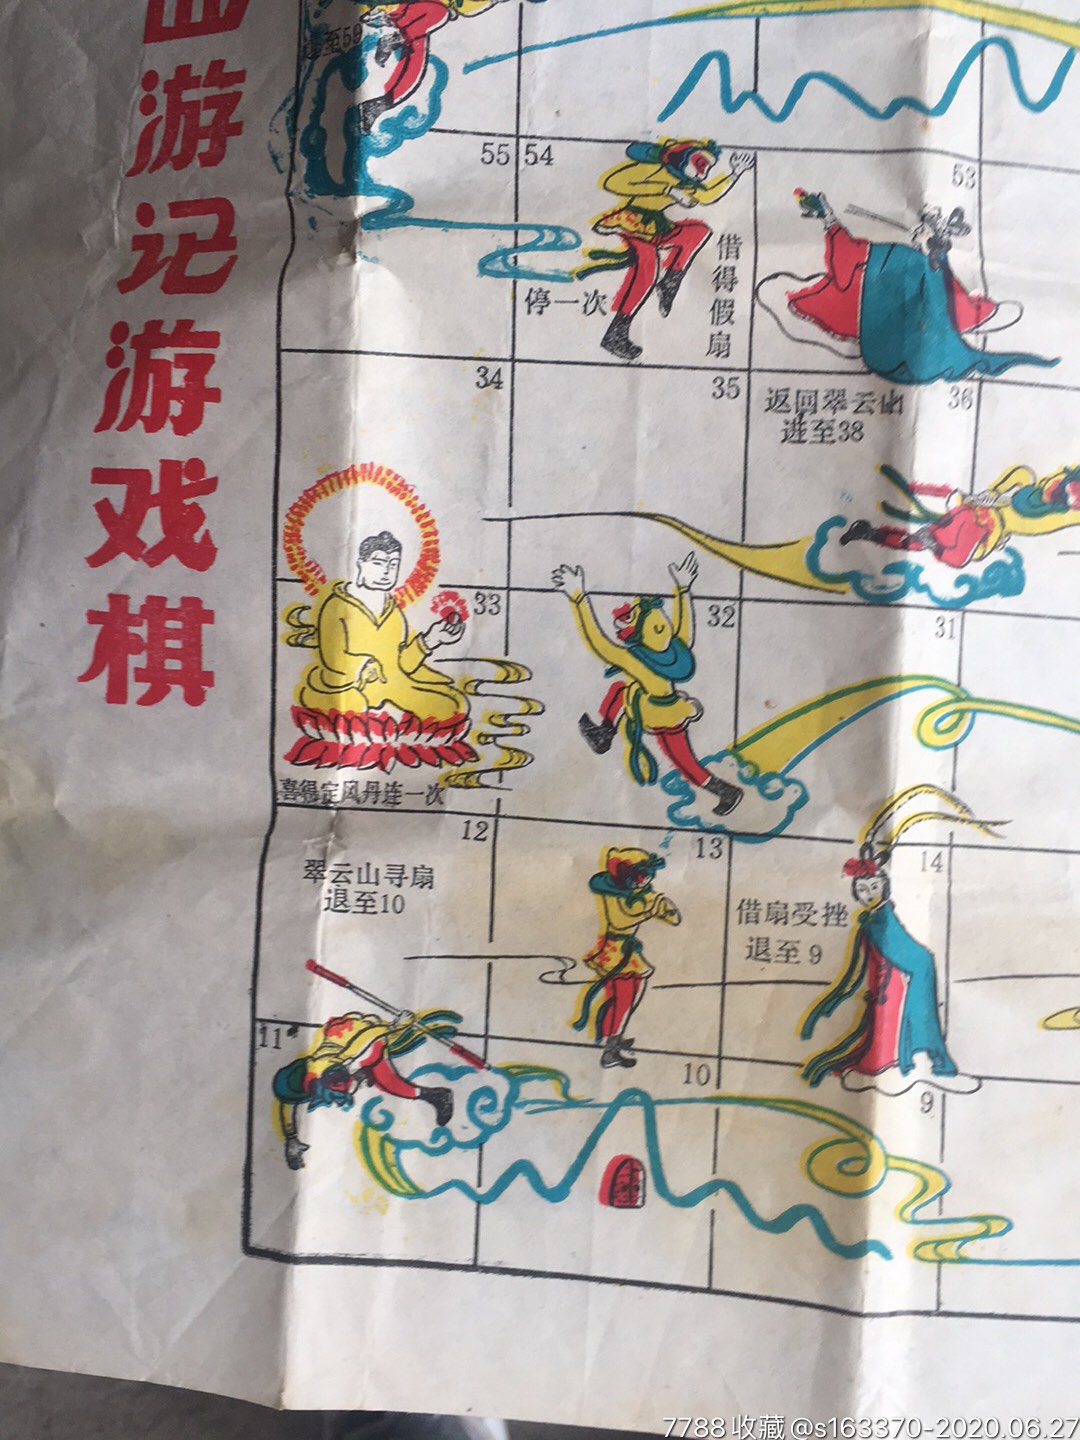 西游记游戏棋
进至59
55
54
53
停一次
借得假扇
34
35
返回翠云山
进至38
36
33
32
31
喜得定风丹连一次
12
13
14
翠云山寻扇
退至10
借扇受挫
退至9
11
10
9
7788收藏@s163370-2020.06.27